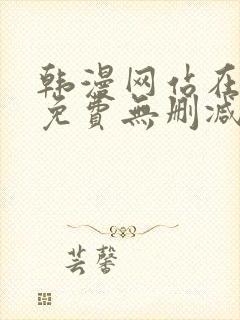 韩漫网站在
免費無删减
芸馨